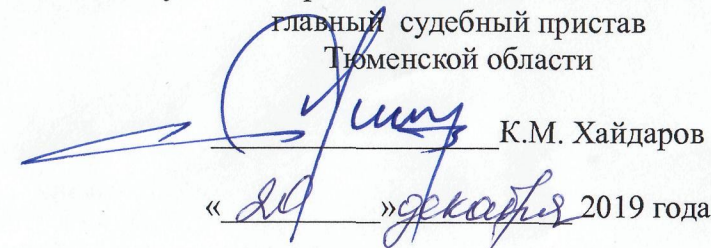 главный судебный пристав
Тюменской области
К.М. Хайдаров
«20» декабря 2019 года